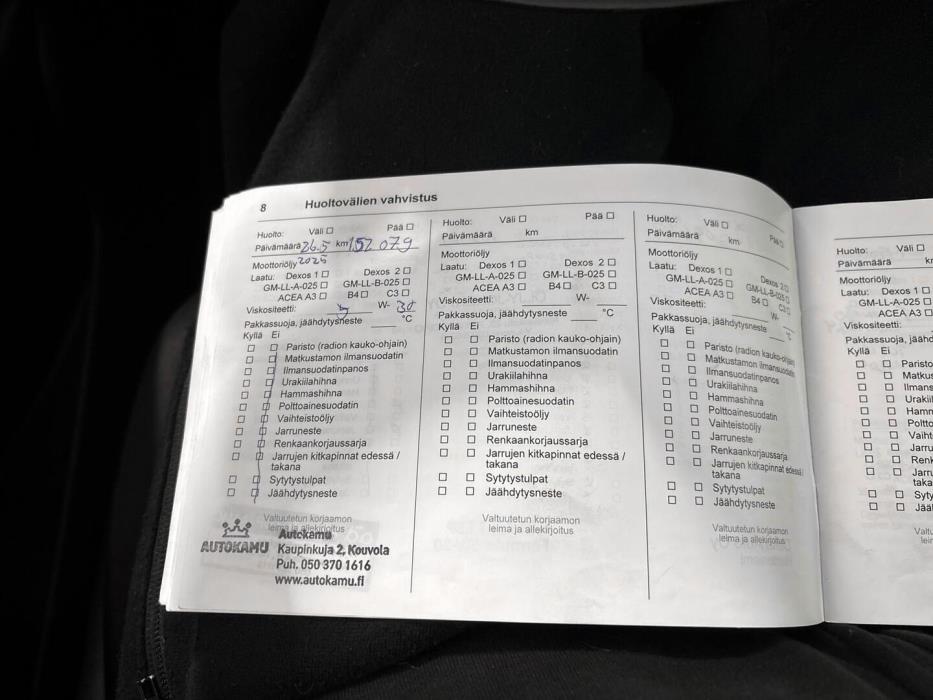 8 Huoltovälien vahvistus
Huolto: Väli ☐ Pää ☐
Päivämäärä 26.5 km 152 079
Moottoriöljy 2025
Laatu: Dexos 1 ☐ Dexos 2 ☐
GM-LL-A-025 ☐ GM-LL-B-025 ☐
ACEA A3 ☐ B4 ☐ C3 ☐
Viskositeetti: 5 W- 30
Pakkassuoja, jäähdytysneste ____ °C
Kyllä Ei
☐ ☐ Paristo (radion kauko-ohjain)
☐ ☐ Matkustamon ilmansuodatin
☐ ☐ Ilmansuodatinpanos
☐ ☐ Urakiilahihna
☐ ☐ Hammashihna
☐ ☐ Polttoainesuodatin
☐ ☐ Vaihteistoöljy
☐ ☐ Jarruneste
☐ ☐ Renkaankorjaussarja
☐ ☐ Jarrujen kitkapinnat edessä /
takana
☐ ☐ Sytytystulpat
☐ ☐ Jäähdytysneste
Valtuutetun korjaamon
leima ja allekirjoitus
AUTOKAMU
Autokamu
Kaupinkuja 2, Kouvola
Puh. 050 370 1616
www.autokamu.fi
Huolto: Väli ☐ Pää ☐
Päivämäärä km
Moottoriöljy
Laatu: Dexos 1 ☐ Dexos 2 ☐
GM-LL-A-025 ☐ GM-LL-B-025 ☐
ACEA A3 ☐ B4 ☐ C3 ☐
Viskositeetti: ____ W- ____
Pakkassuoja, jäähdytysneste ____ °C
Kyllä Ei
☐ ☐ Paristo (radion kauko-ohjain)
☐ ☐ Matkustamon ilmansuodatin
☐ ☐ Ilmansuodatinpanos
☐ ☐ Urakiilahihna
☐ ☐ Hammashihna
☐ ☐ Polttoainesuodatin
☐ ☐ Vaihteistoöljy
☐ ☐ Jarruneste
☐ ☐ Renkaankorjaussarja
☐ ☐ Jarrujen kitkapinnat edessä /
takana
☐ ☐ Sytytystulpat
☐ ☐ Jäähdytysneste
Valtuutetun korjaamon
leima ja allekirjoitus
Huolto: Väli ☐ Pää ☐
Päivämäärä km
Moottoriöljy
Laatu: Dexos 1 ☐ Dexos 2 ☐
GM-LL-A-025 ☐ GM-LL-B-025 ☐
ACEA A3 ☐ B4 ☐ C3 ☐
Viskositeetti: ____ W- ____
Pakkassuoja, jäähdytysneste ____ °C
Kyllä Ei
☐ ☐ Paristo (radion kauko-ohjain)
☐ ☐ Matkustamon ilmansuodatin
☐ ☐ Ilmansuodatinpanos
☐ ☐ Urakiilahihna
☐ ☐ Hammashihna
☐ ☐ Polttoainesuodatin
☐ ☐ Vaihteistoöljy
☐ ☐ Jarruneste
☐ ☐ Renkaankorjaussarja
☐ ☐ Jarrujen kitkapinnat edessä /
takana
☐ ☐ Sytytystulpat
☐ ☐ Jäähdytysneste
Valtuutetun korjaamon
leima ja allekirjoitus
Huolto: Väli ☐
Päivämäärä
Moottoriöljy
Laatu: Dexos 1 ☐
GM-LL-A-025 ☐
ACEA A3 ☐
Viskositeetti:
Pakkassuoja, jäähd
Kyllä Ei
☐ ☐ Paristo
☐ ☐ Matkus
☐ ☐ Ilmans
☐ ☐ Urakiil
☐ ☐ Hamm
☐ ☐ Poltto
☐ ☐ Vaiht
☐ ☐ Jarru
☐ ☐ Renk
☐ ☐ Jarru
taka
☐ ☐ Syty
☐ ☐ Jää